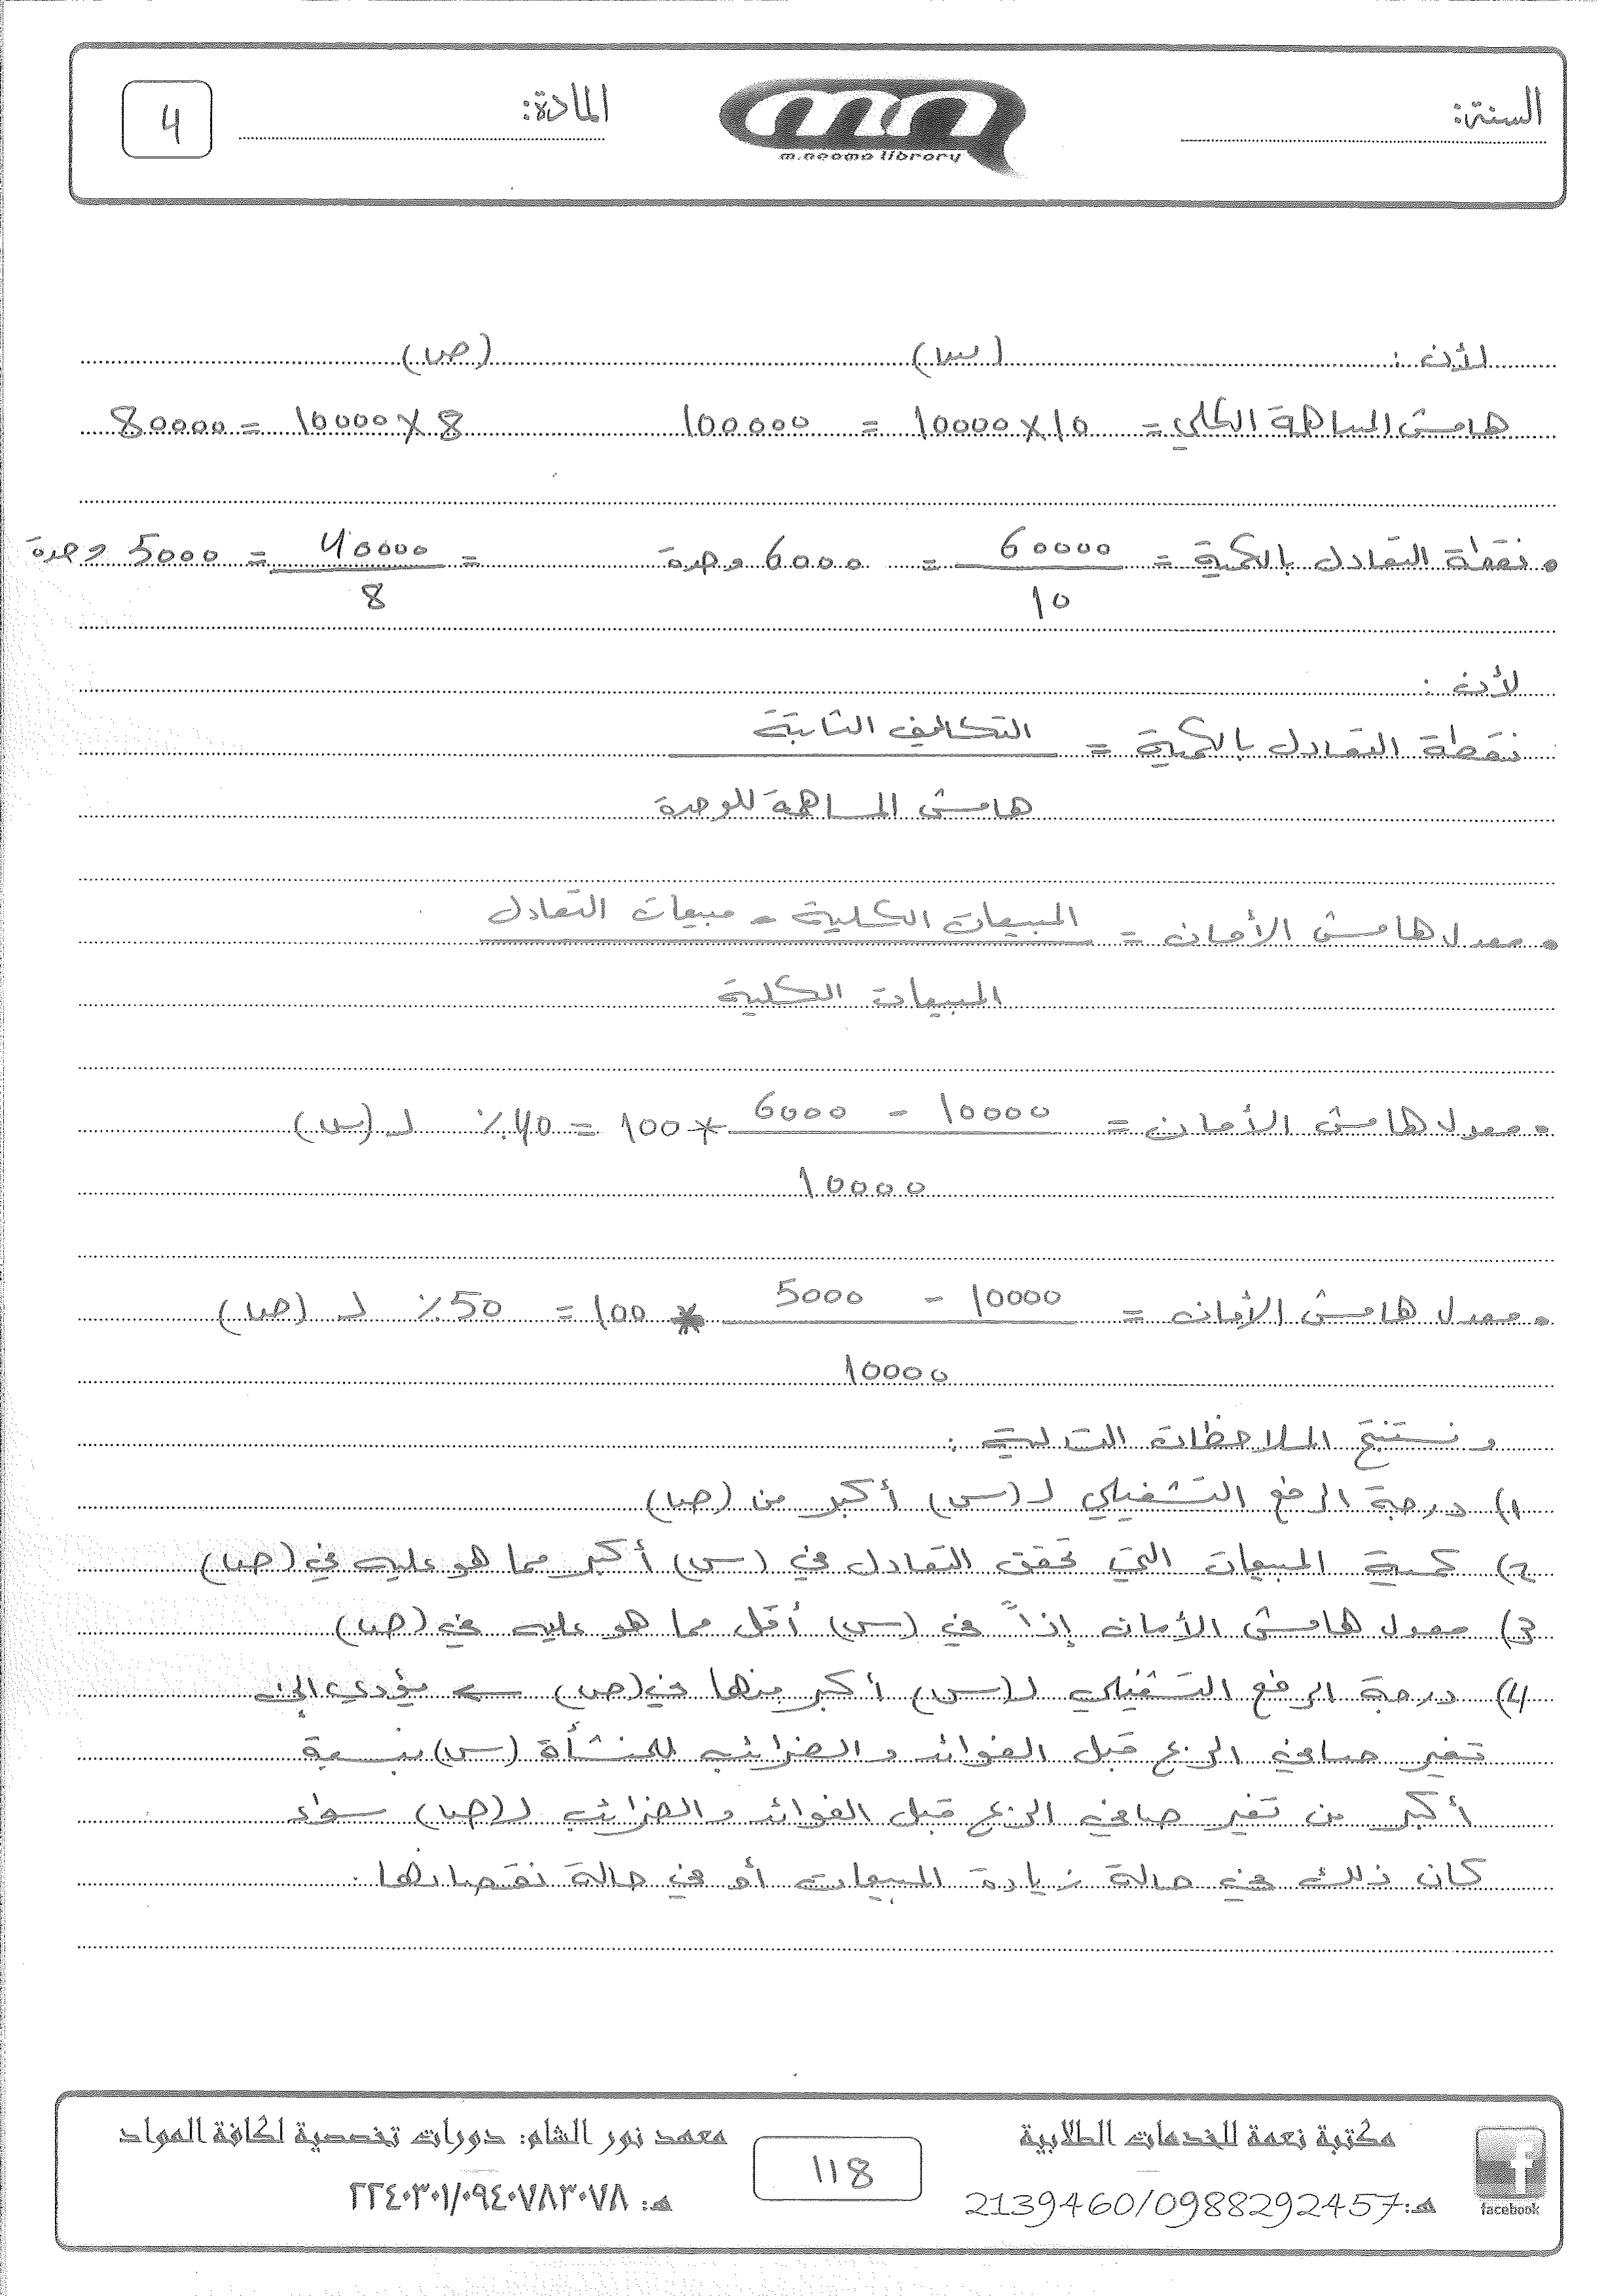 السنة:
m.neoma library
المادة:
4
لأن : (س) (ص)
هامش المساهمة الكلي = 10 × 10000 = 100000 8 × 10000 = 80000
• نقطة التعادل بالكمية = 60000 = 6000 وحدة = 40000 = 5000 وحدة
10 8
لأن :
نقطة التعادل بالكمية = التكاليف الثابتة
هامش المساهمة للوحدة
• معدل هامش الأمان = المبيعات الكلية - مبيعات التعادل
المبيعات الكلية
• معدل هامش الأمان = 10000 - 6000 * 100 = 40٪ لـ (س)
10000
• معدل هامش الأمان = 10000 - 5000 * 100 = 50٪ لـ (ص)
10000
ونستنتج الملاحظات التالية :
1) درجة الرفع التشغيلي لـ (س) أكبر من (ص)
2) كمية المبيعات التي تحقق التعادل في (س) أكبر مما هو عليه في (ص)
3) معدل هامش الأمان إذاً في (س) أقل مما هو عليه في (ص)
4) درجة الرفع التشغيلي لـ (س) أكبر منها في (ص) ← يؤدي إلى
تغير صافي الربح قبل الفوائد والضرائب للمنشأة (س) بنسبة
أكبر من تغير صافي الربح قبل الفوائد والضرائب لـ (ص) سواء
كان ذلك في حالة زيادة المبيعات أو في حالة نقصانها .
مكتبة نعمة للخدمات الطلابية
هـ: 2139460/0988292457
facebook
118
معهد نور الشام: دورات تخصصية لكافة المواد
هـ: ٢٢٤٠٣٠١/٠٩٤٠٧٨٣٠٧٨